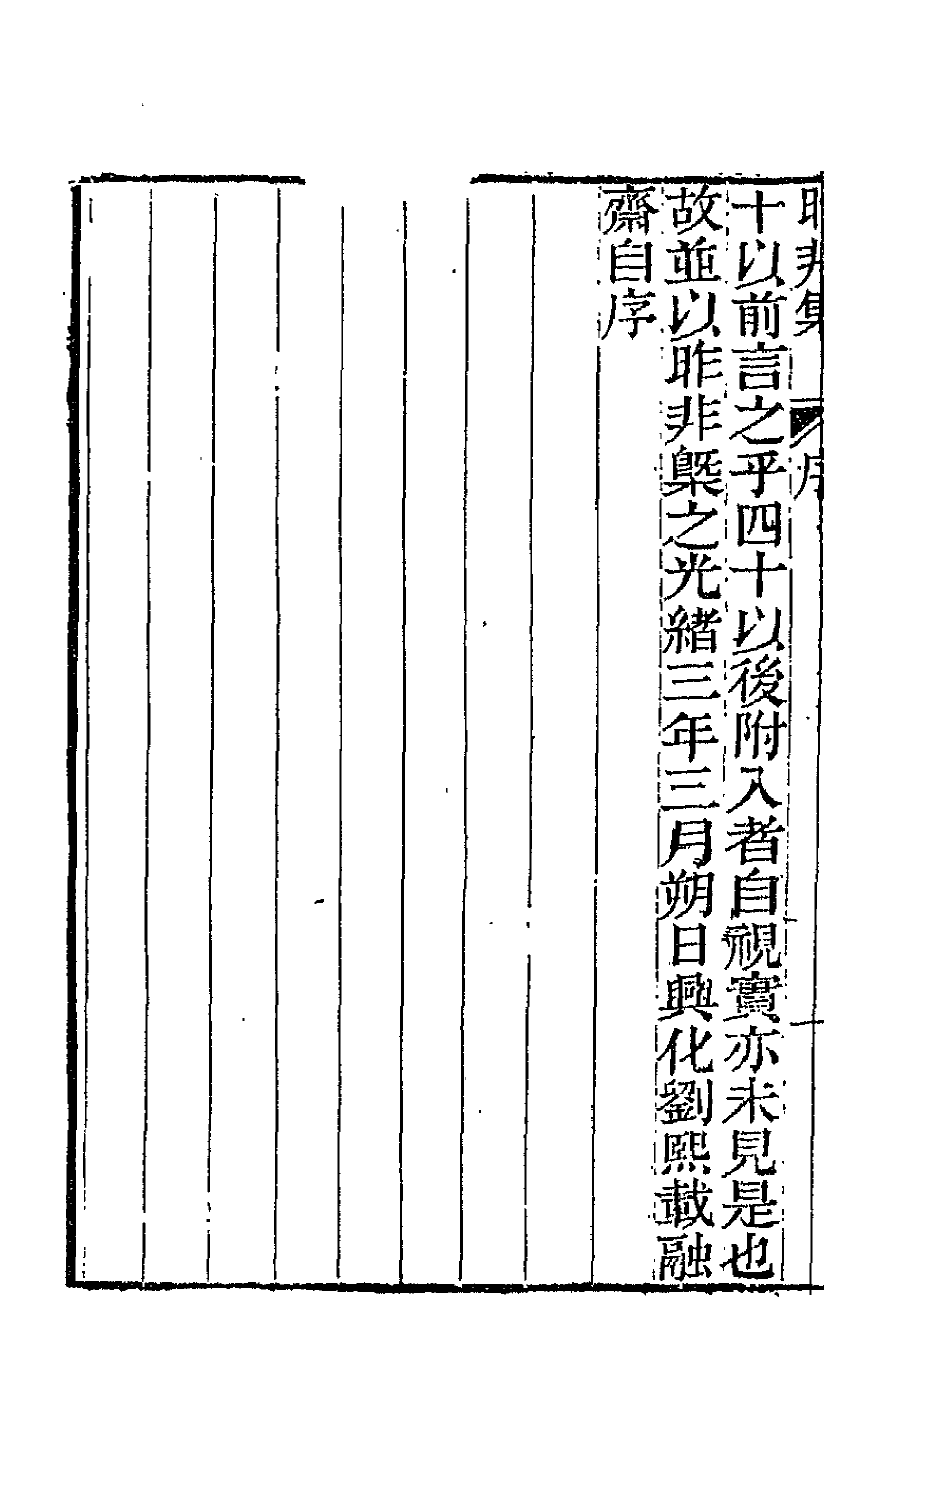 昨非集 序
十以前言之乎四十以後附入者自視實亦未見是也
故並以昨非槩之光緒三年三月朔日興化劉熙載融
齋自序